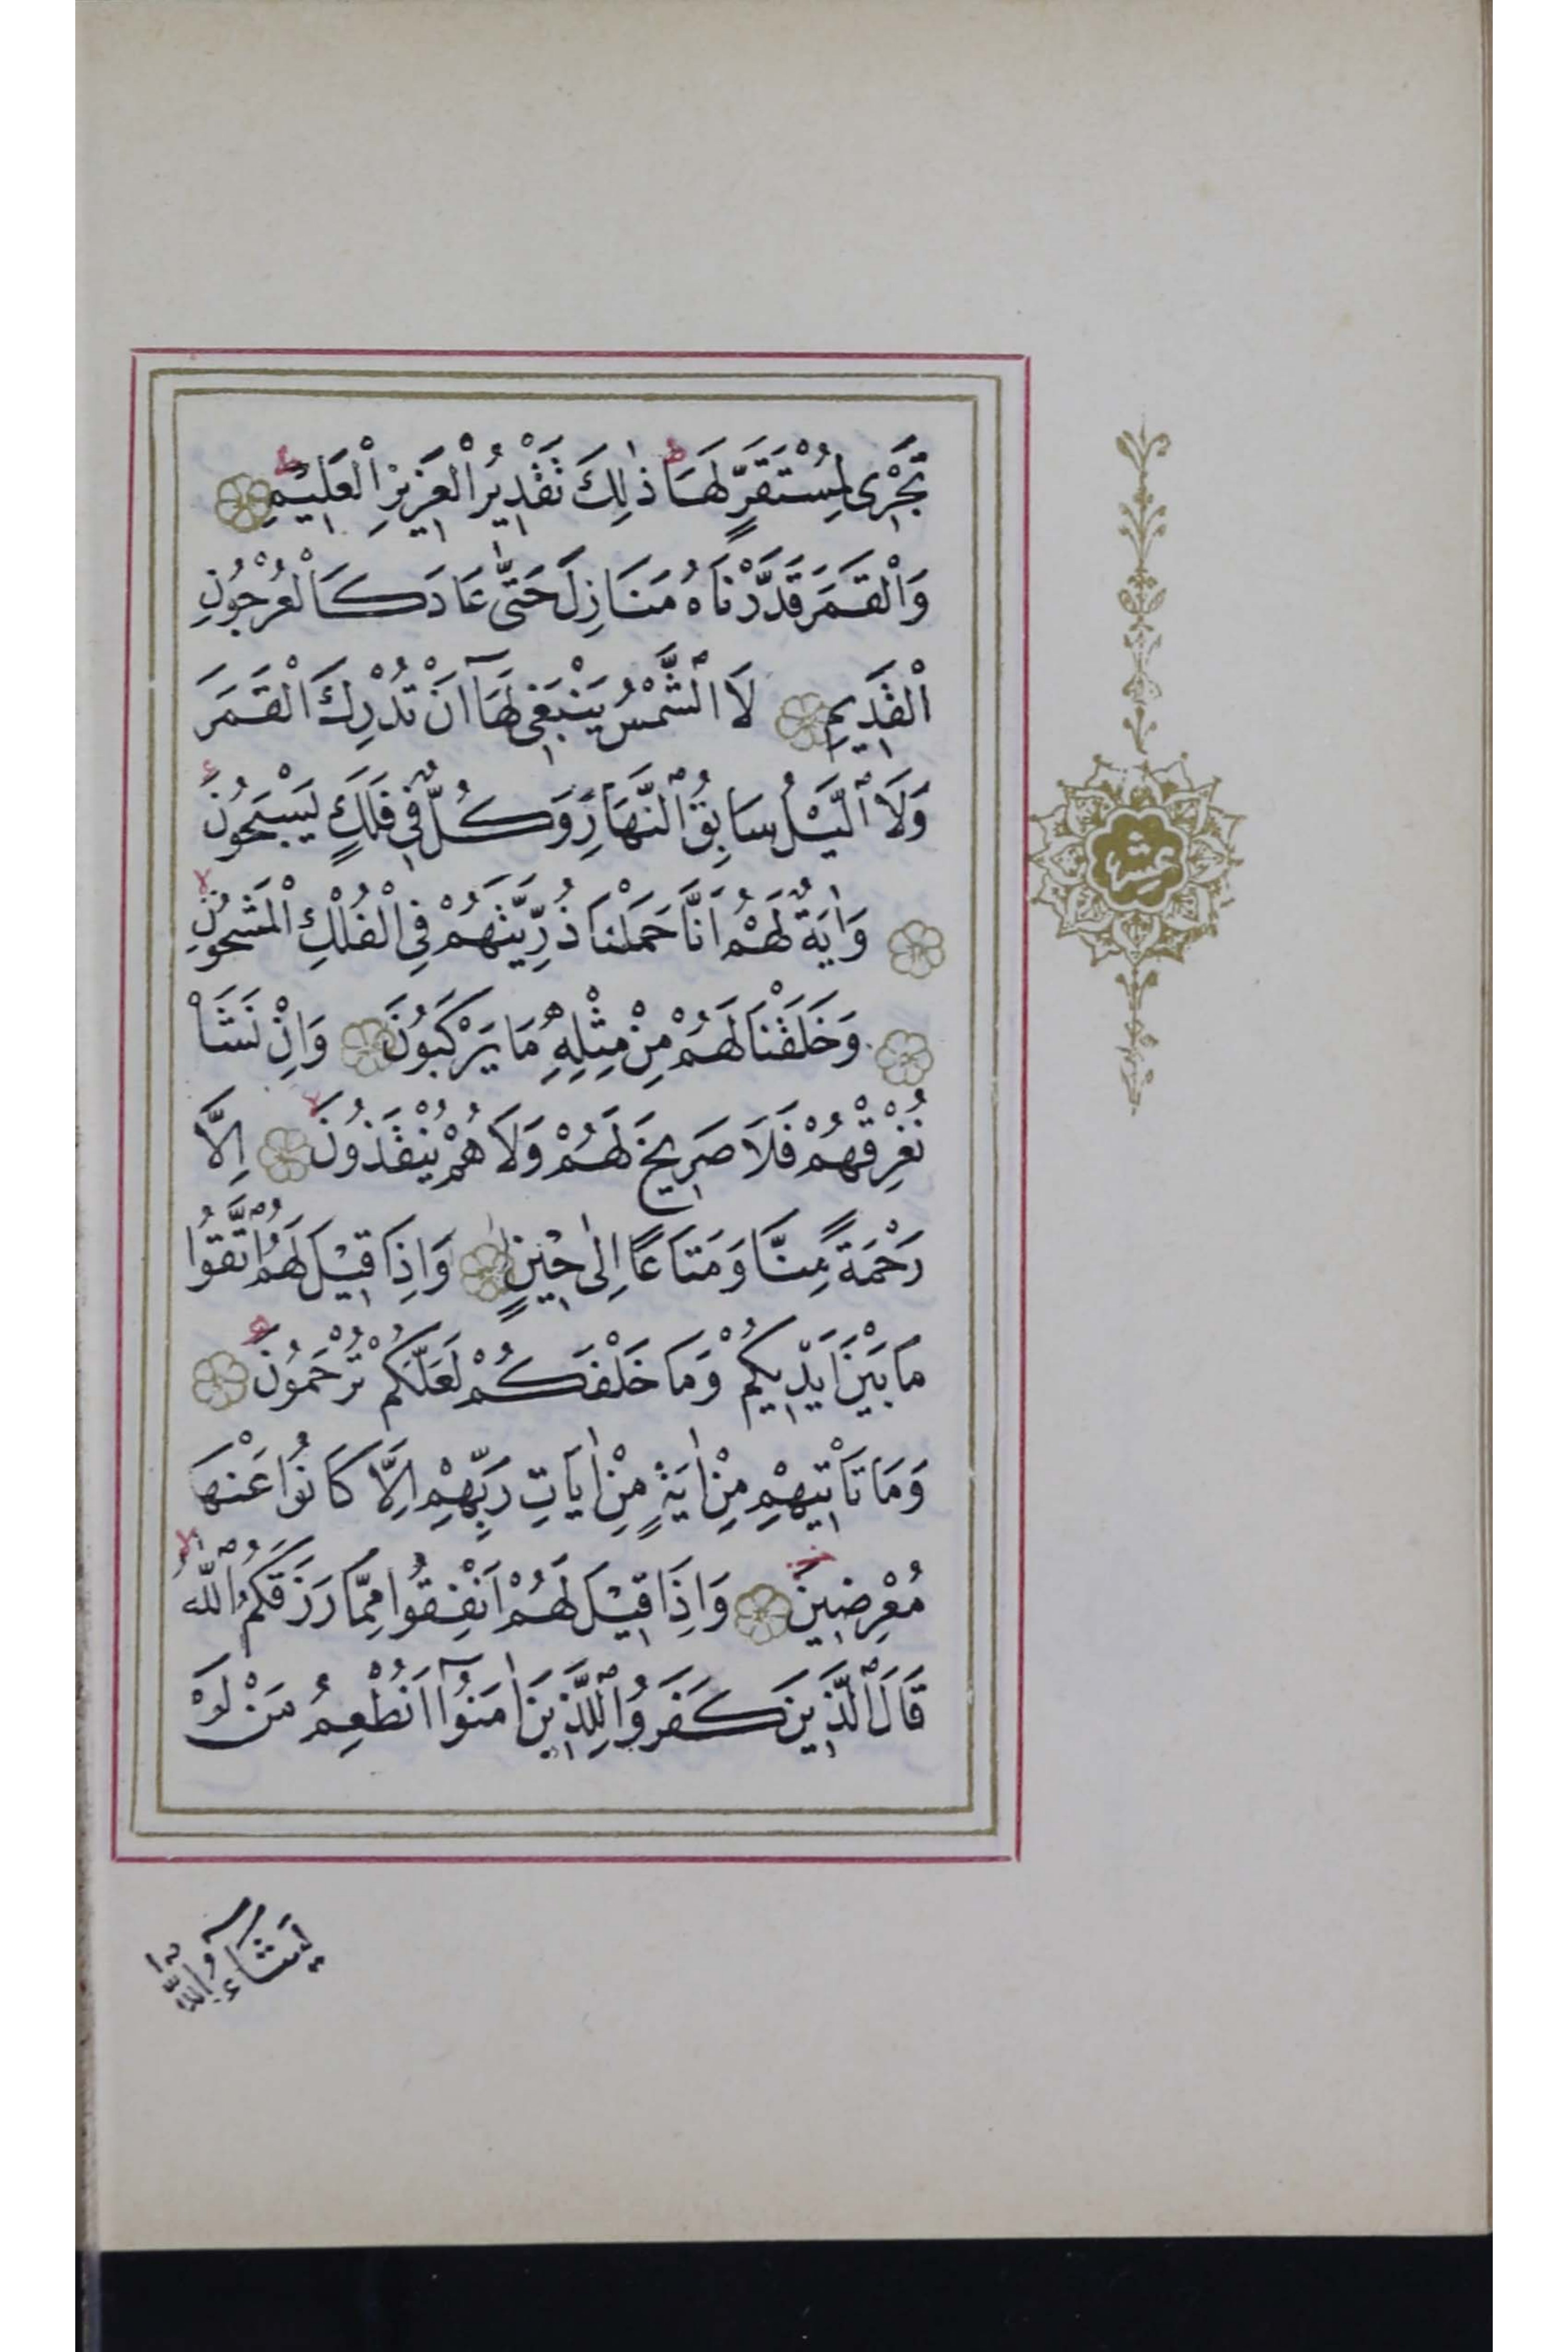 تَجْرِى لِمُسْتَقَرٍّ لَهَا ط ذٰلِكَ تَقْدِيرُ الْعَزِيزِ الْعَلِيمِ ط
وَالْقَمَرَ قَدَّرْنَاهُ مَنَازِلَ حَتّٰى عَادَ كَالْعُرْجُونِ
الْقَدِيمِ لَا الشَّمْسُ يَنْبَغِى لَهَٓا اَنْ تُدْرِكَ الْقَمَرَ
وَلَا الَّيْلُ سَابِقُ النَّهَارِ وَكُلٌّ فِى فَلَكٍ يَسْبَحُونَ
وَاٰيَةٌ لَهُمْ اَنَّا حَمَلْنَا ذُرِّيَّتَهُمْ فِى الْفُلْكِ الْمَشْحُونِ لا
وَخَلَقْنَا لَهُمْ مِنْ مِثْلِهِ مَا يَرْكَبُونَ وَاِنْ نَشَاْ
نُغْرِقْهُمْ فَلَا صَرِيخَ لَهُمْ وَلَا هُمْ يُنْقَذُونَ لا اِلَّا
رَحْمَةً مِنَّا وَمَتَاعًا اِلٰى حِينٍ وَاِذَا قِيلَ لَهُمُ اتَّقُوا
مَا بَيْنَ اَيْدِيكُمْ وَمَا خَلْفَكُمْ لَعَلَّكُمْ تُرْحَمُونَ
وَمَا تَأْتِيهِمْ مِنْ اٰيَةٍ مِنْ اٰيَاتِ رَبِّهِمْ اِلَّا كَانُوا عَنْهَا
مُعْرِضِينَ وَاِذَا قِيلَ لَهُمْ اَنْفِقُوا مِمَّا رَزَقَكُمُ اللّٰهُ لا
قَالَ الَّذِينَ كَفَرُوا لِلَّذِينَ اٰمَنُوٓا اَنُطْعِمُ مَنْ لَوْ
يَشَٓاءُ اللّٰهُ
عشر